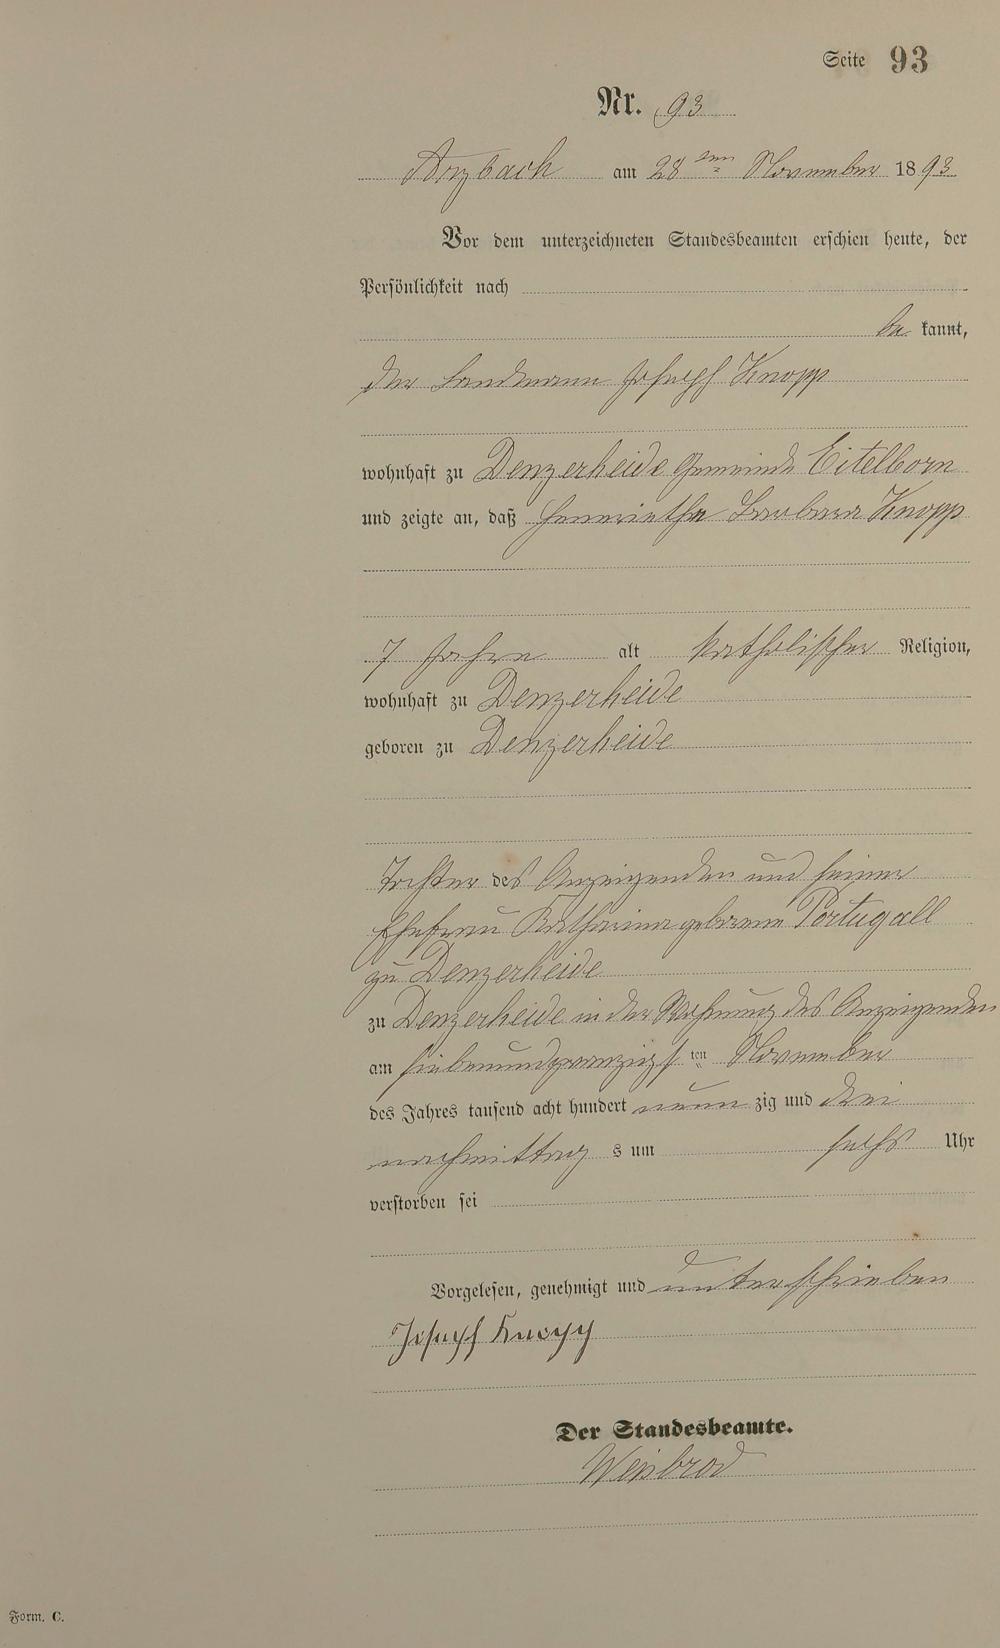 Seite 93
Nr. 93
Arzbach am 28 ten November 1893
Vor dem unterzeichneten Standesbeamten erschien heute, der
Persönlichkeit nach
be kannt,
der Landmann Joseph Knopp
wohnhaft zu Denzerheide Gemeinde Eitelborn
und zeigte an, daß Henriethe Barbara Knopp
7 Jahre alt katholischer Religion,
wohnhaft zu Denzerheide
geboren zu Denzerheide
Tochter des Anzeigenden und seiner
Ehefrau Katharina geborene Portugall
zu Denzerheide
zu Denzerheide in der Wohnung des Anzeigenden
am siebenundzwanzigsten November
des Jahres tausend acht hundert neun zig und drei
nachmittag s um sechs Uhr
verstorben sei
Vorgelesen, genehmigt und unterschrieben
Joseph Knopp
Der Standesbeamte.
Weisbrod
Form. C.